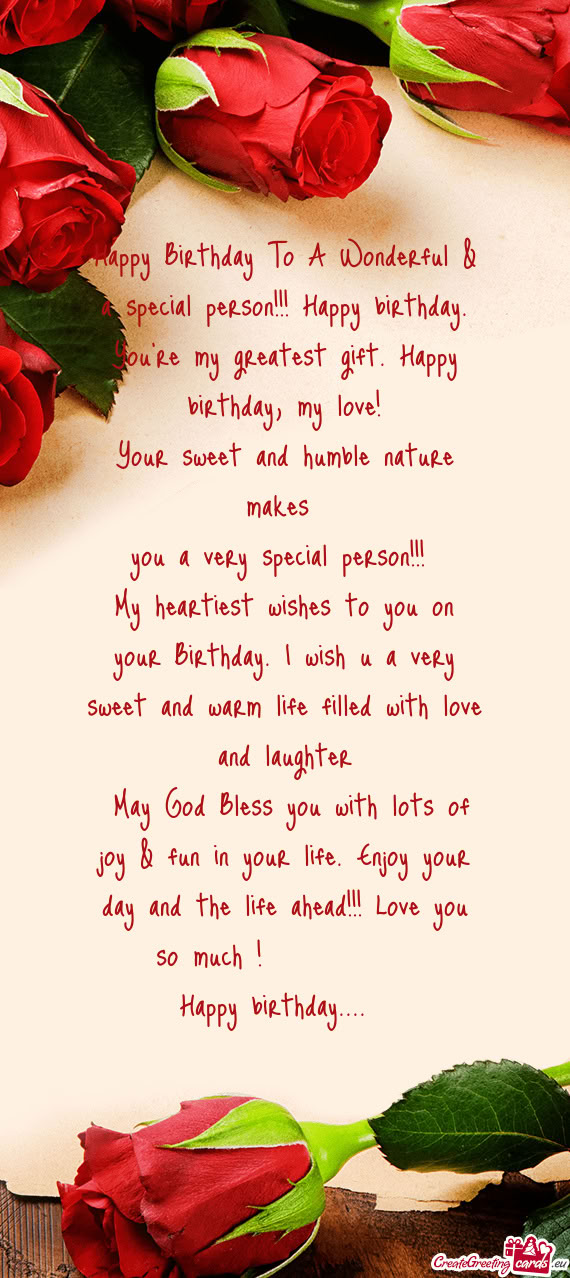 Happy Birthday To A Wonderful &
a special person!!! Happy birthday.
You're my greatest gift. Happy
birthday, my love!
Your sweet and humble nature
makes
you a very special person!!!
My heartiest wishes to you on
your Birthday. I wish u a very
sweet and warm life filled with love
and laughter
May God Bless you with lots of
joy & fun in your life. Enjoy your
day and the life ahead!!! Love you
so much !
Happy birthday....
CreateGreetingcards.eu